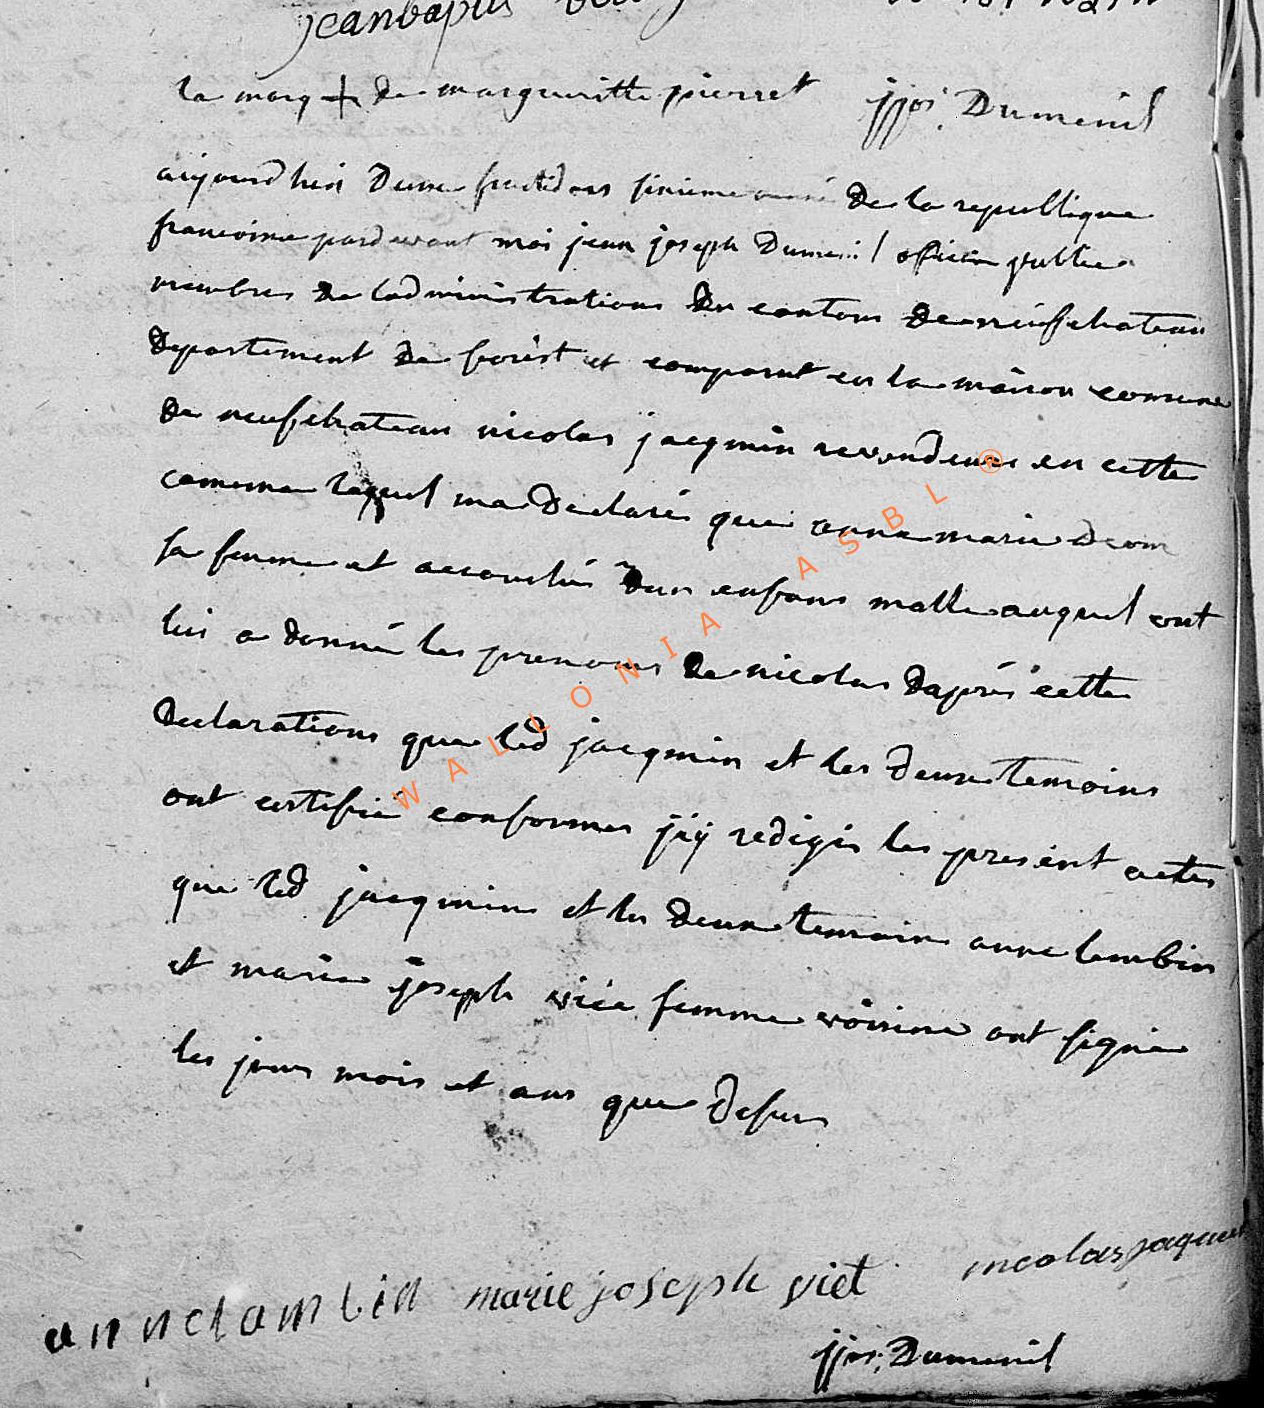 jeanbaptis
la marq + de margueritte pierret jjos. Dumenil
aujourdhui deuxe fructidors sixieme anné de la republique
francoise pardevant moi jean joseph Dumenil officier publics
membres de ladministrations du cantons de neufchateau
departement de forêst et comparut en la maison comune
de neufchateau nicolas jacqmin revendeur en cette
comune lequel ma declarés que anne marie deom
sa femme et accouchés dun enfans malle auquel ont
lui a donné les prenoms de nicolas daprés cette
declarations que led jacqmin et les deux temoins
ont certifié conformes j'ay redigés les present actes
que led jacqmin et les deux temoin anne lambin
et marie joseph viée femme voisine ont signé
les jours mois et ans que desus
WALLONIA ASBL ®
anne lambin marie joseph viet nicolas jaqmin
jjos. Dumenil